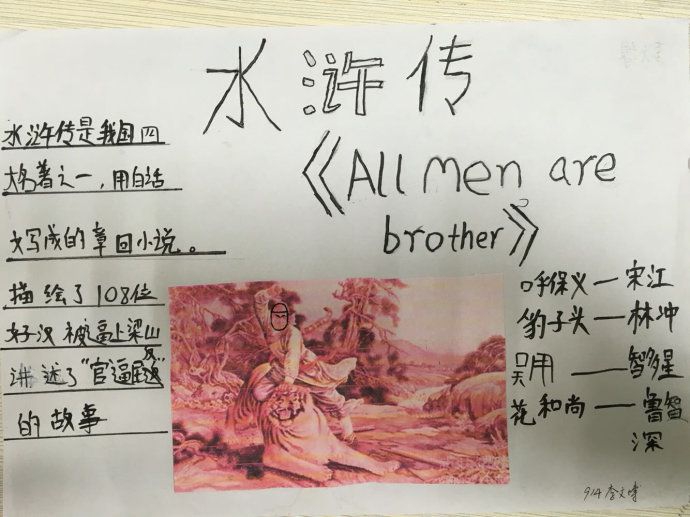 水浒传
《All men are
brother》
水浒传是我国四
大名著之一,用白话
文写成的章回小说。
描绘了108位
好汉被逼上梁山
讲述了"官逼民反"
的故事
呼保义—宋江
豹子头—林冲
吴用—智多星
花和尚—鲁智
深
914